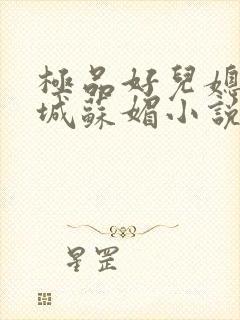 極品好兒媳
城蘇媚小説
星罡